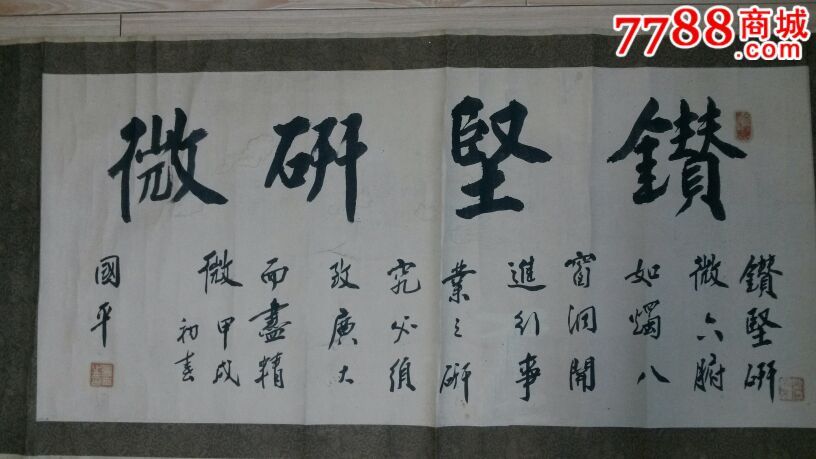 7788商城
.com
鑽堅研微
鑽堅研
微六腑
如燭八
窗洞開
進行事
業之研
究必須
致廣大
而盡精
微甲戌
初春
國平